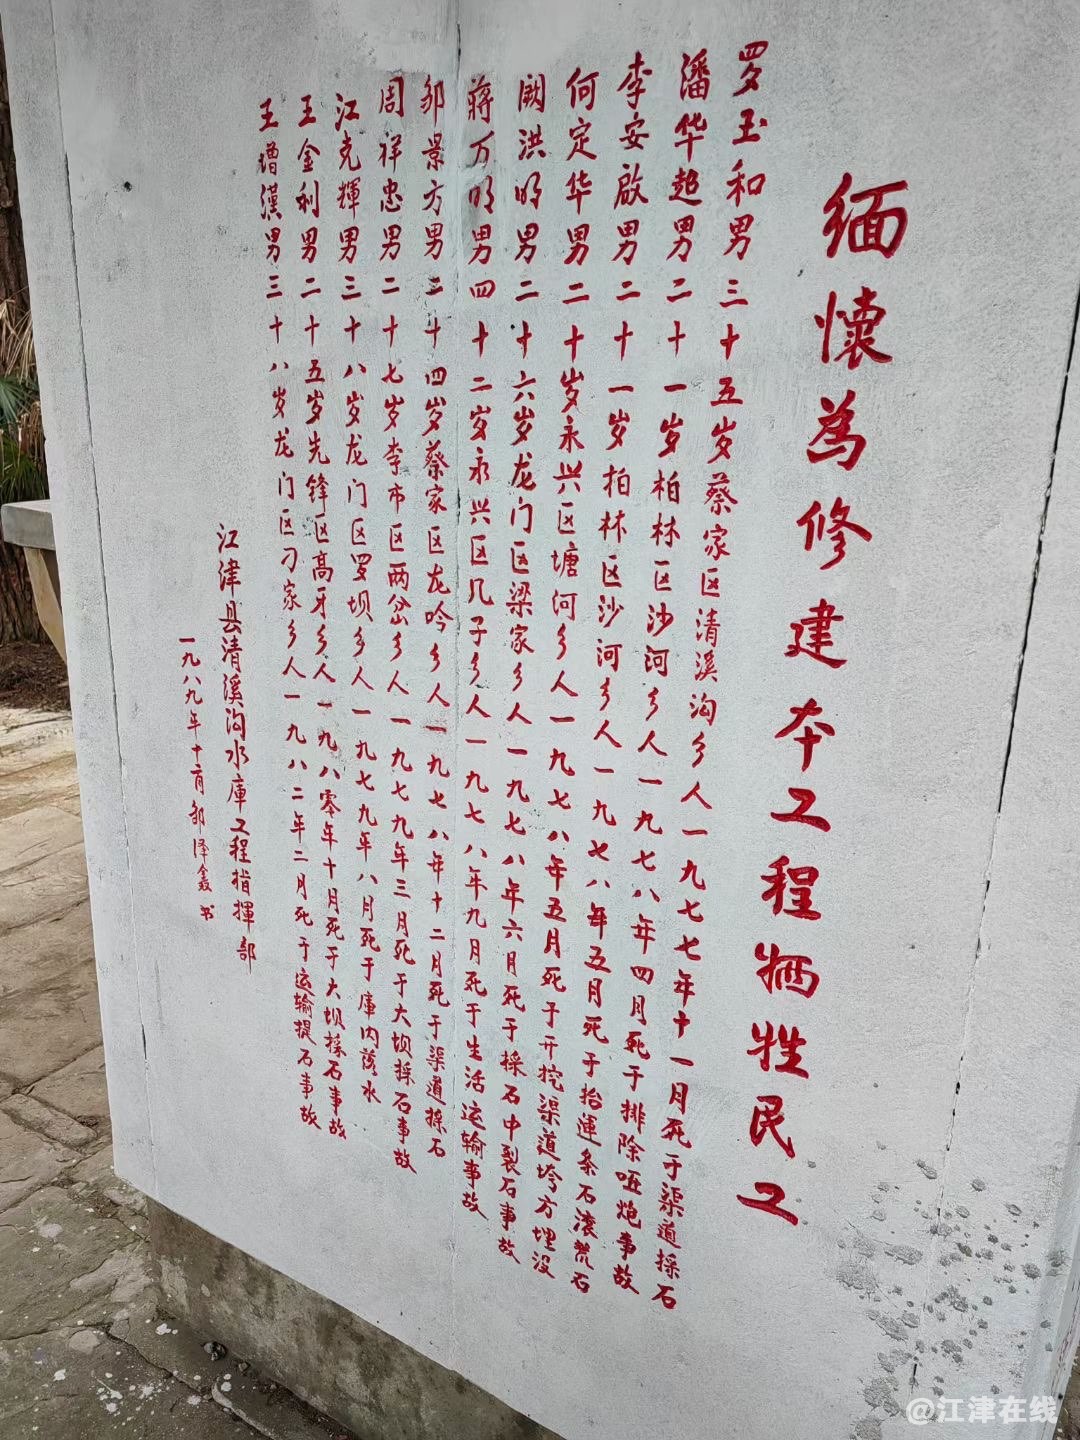 缅懷為修建本工程牺牲民工
罗玉和男三十五岁蔡家区清溪沟乡人一九七七年十一月死于渠道採石
潘华超男二十一岁柏林区沙河乡人一九七八年四月死于排除哑炮事故
李安啟男二十一岁柏林区沙河乡人一九七八年五月死于抬運条石滚荒石
何定华男二十岁永兴区塘河乡人一九七八年五月死于开挖渠道垮方埋没
阚洪明男二十六岁龙门区梁家乡人一九七八年六月死于採石中裂石事故
蔣万明男四十二岁永兴区几子乡人一九七八年九月死于生活运输事故
邹景方男二十四岁蔡家区龙吟乡人一九七八年十二月死于渠道採石
周祥忠男二十七岁李市区两岔乡人一九七九年三月死于大坝採石事故
江克輝男三十八岁龙门区罗坝乡人一九七九年八月死于庫内落水
王金利男二十五岁先锋区高牙乡人一九八零年十月死于大坝採石事故
王增漢男三十八岁龙门区刁家乡人一九八二年二月死于运输提石事故
江津县清溪沟水庫工程指揮部
一九八九年十月邹泽鑫书
@江津在线